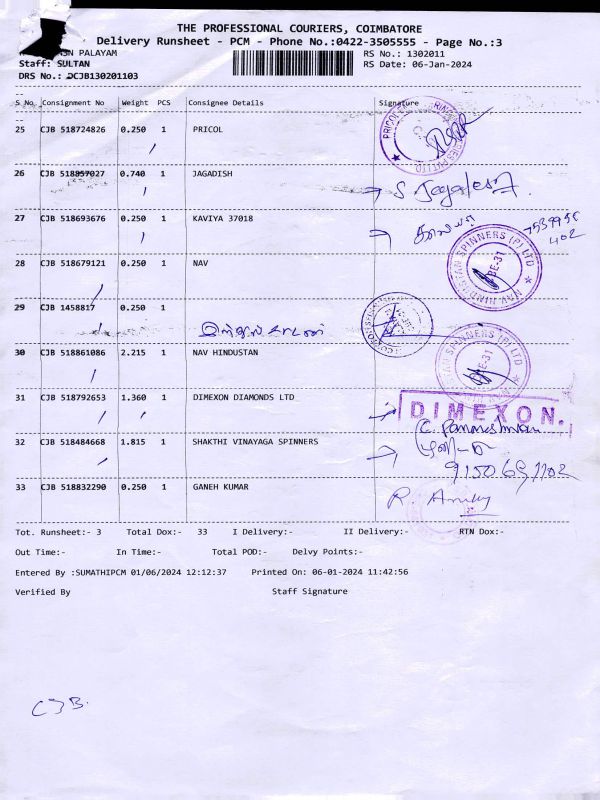 THE PROFESSIONAL COURIERS, COIMBATORE
Delivery Runsheet - PCM - Phone No.:0422-3505555 - Page No.:3
PALAYAM RS No.: 1302011
Staff: SULTAN RS Date: 06-Jan-2024
DRS No.: DCJB130201103
S No. Consignment No Weight PCS Consignee Details Signature
25 CJB 518724826 0.250 1 PRICOL
26 CJB 518857027 0.740 1 JAGADISH
S. Jagadesh
27 CJB 518693676 0.250 1 KAVIYA 37018
28 CJB 518679121 0.250 1 NAV
NAV HINDUSTAN SPINNERS (P) LTD
BE-31
29 CJB 1458817 0.250 1
30 CJB 518861086 2.215 1 NAV HINDUSTAN
SPINNERS (P) LTD
BE-31
31 CJB 518792653 1.360 1 DIMEXON DIAMONDS LTD
DIMEXON.
32 CJB 518484668 1.815 1 SHAKTHI VINAYAGA SPINNERS
33 CJB 518832290 0.250 1 GANEH KUMAR
Tot. Runsheet:- 3 Total Dox:- 33 I Delivery:- II Delivery:- RTN Dox:-
Out Time:- In Time:- Total POD:- Delvy Points:-
Entered By :SUMATHIPCM 01/06/2024 12:12:37 Printed On: 06-01-2024 11:42:56
Verified By Staff Signature
CJB.